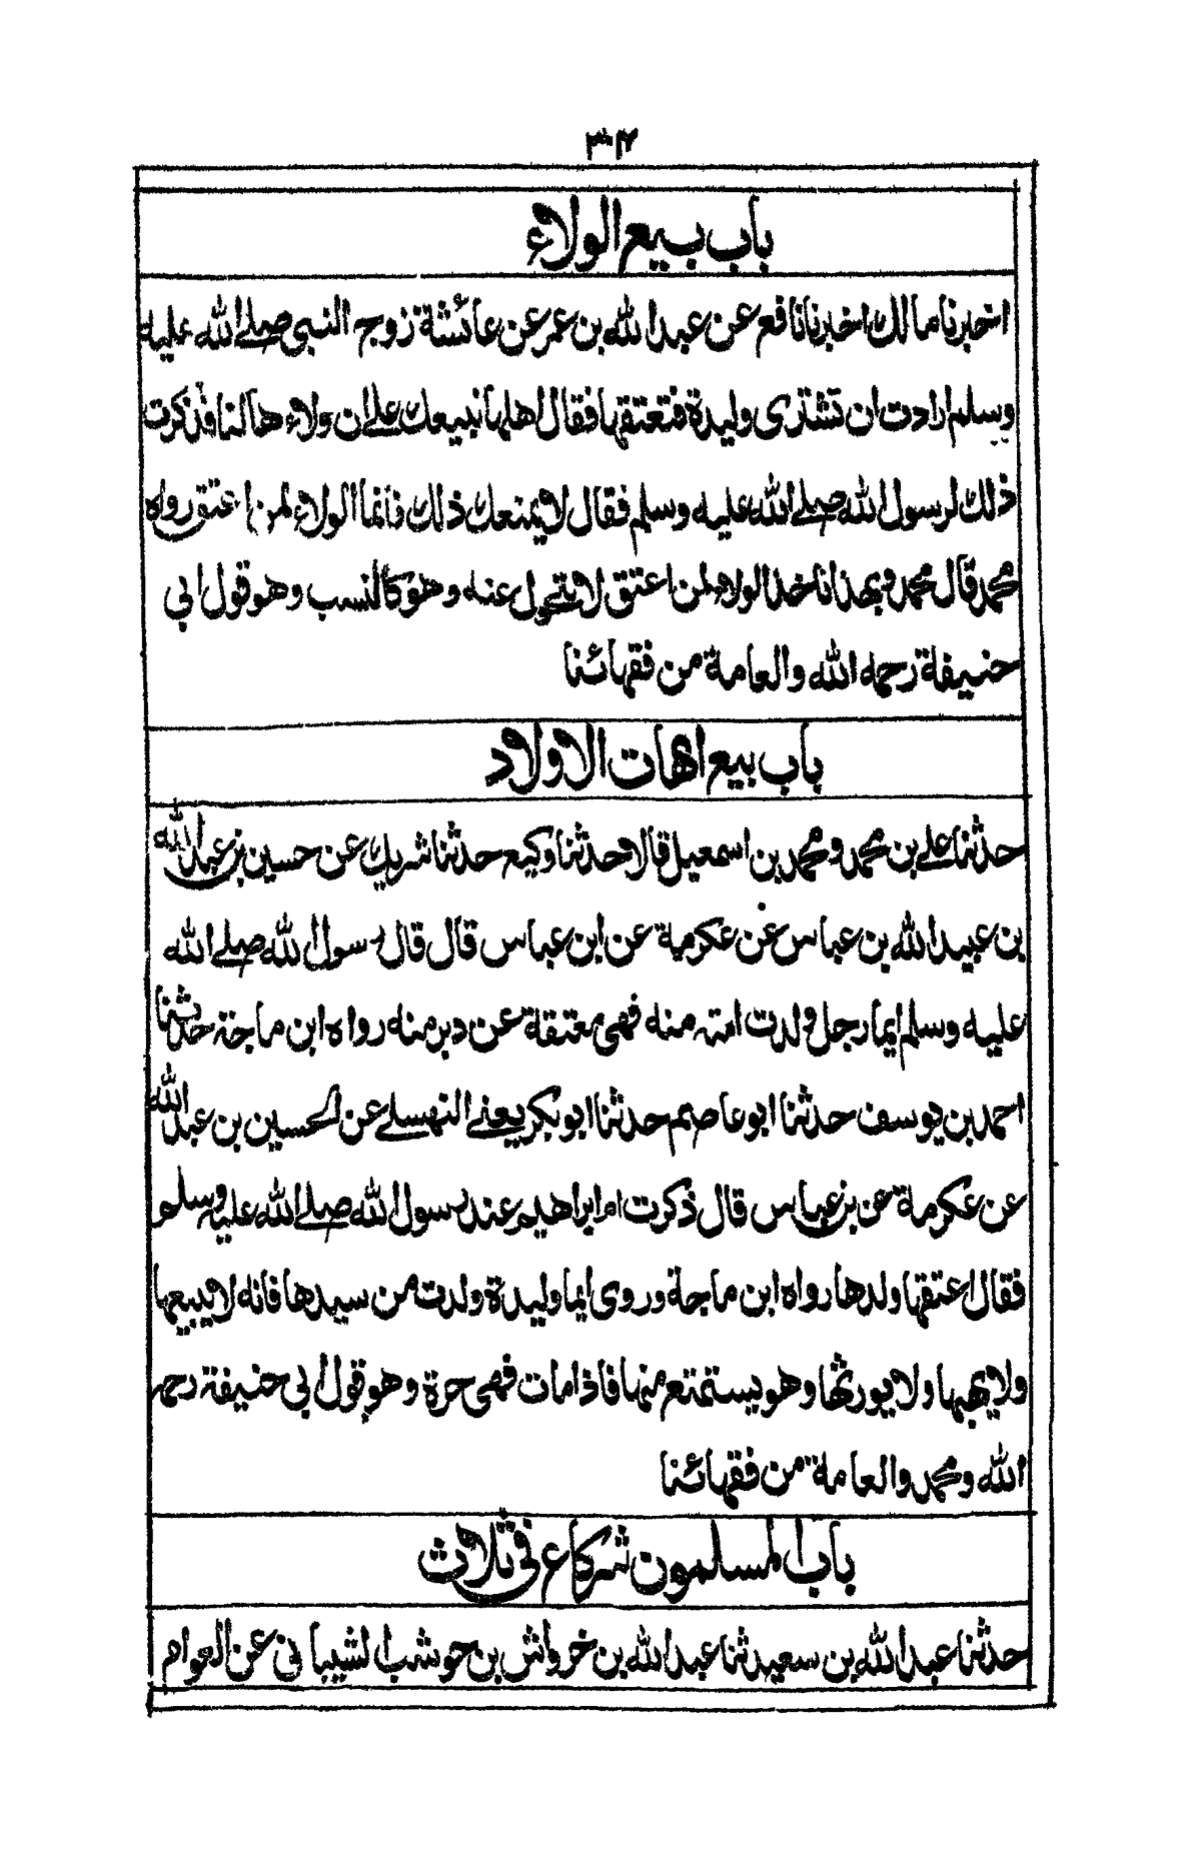 ٣٠٤
باب بيع الولاء
اخبرنا مالك اخبرنا نافع عن عبد الله بن عمر عن عائشة زوج النبي صلے الله عليه
وسلم ارادت ان تشتري وليدة فتعتقها فقال اهلها نبيعك علے ان ولاءها لنا فذكرت
ذلك لرسول الله صلے الله عليه وسلم فقال لا يمنعك ذلك فانما الولاء لمن اعتق رواه
محمد قال محمد وبهذا ناخذ الولاء لمن اعتق لا يتحول عنه وهو كالنسب وهو قول ابي
حنيفة رحمه الله والعامة من فقهائنا
باب بيع امهات الاولاد
حدثنا علے بن محمد ومحمد بن اسمعيل قالا حدثنا وكيع حدثنا شريك عن حسين بن عبد الله
بن عبيد الله بن عباس عن عكرمة عن ابن عباس قال قال رسول الله صلے الله
عليه وسلم ايما رجل ولدت امته منه فهي معتقة عن دبر منه رواه ابن ماجة حدثنا
احمد بن يوسف حدثنا ابو عاصم حدثنا ابو بكر يعنے النهسلے عن الحسين بن عبد الله
عن عكرمة عن بن عباس قال ذكرت ام ابراهيم عند رسول الله صلے الله عليه وسلم
فقال اعتقها ولدها رواه ابن ماجة وروى ايما وليدة ولدت من سيدها فانه لا يبيعها
ولا يهبها ولا يورثها وهو يستمتع منها فاذا مات فهي حرة وهو قول ابي حنيفة رحمه
الله ومحمد والعامة من فقهائنا
باب المسلمون شركاء في ثلاث
حدثنا عبد الله بن سعيد ثنا عبد الله بن خرواش بن حوشب الشيباني عن العوام